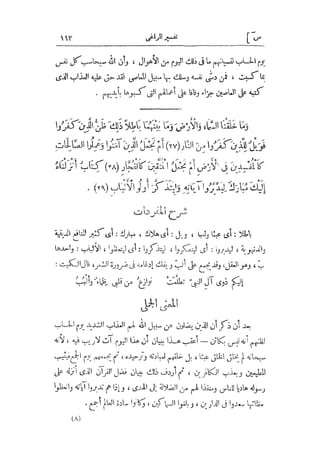 ص] تفسير المراغى ١١٣
يوم الحساب نفسيانهم ما فى ذلك اليوم من الأهوال ، وأن الله سيحاسب كل نفس
بما كسبت ، فمن دسّى نفسه وسلك بها سبيل المعاصى فقد حق عليه العذاب الذى
كتبه على العاصين جزاء وفاقا على أعمالهم التى كسبوها بأيديهم .
وَمَا خَلَقْنَا السَّمَاءَ وَالْأَرْضَ وَمَا بَيْنَهُمَا بَاطِلًا ذَلِكَ ظَنُّ الَّذِينَ كَفَرُوا
فَوَيْلٌ لِلَّذِينَ كَفَرُوا مِنَ النَّارِ (٢٧) أَمْ نَجْعَلُ الَّذِينَ آمَنُوا وَعَمِلُوا الصَّالِحَاتِ
كَالْمُفْسِدِينَ فِى الْأَرْضِ أَمْ نَجْعَلُ الْمُتَّقِينَ كَالْفُجَّارِ (٢٨) كِتَابٌ أَنْزَلْنَاهُ
إِلَيْكَ مُبَارَكٌ لِيَدَّبَّرُوا آيَاتِهِ وَلِيَتَذَكَّرَ أُولُو الْأَلْبَابِ (٢٩) .
شرح المفردات
باطلا : أى عبثا ولعبا ، ويل : أى هلاك ، مبارك : أى كثير المنافع الدينية
والدنيوية ، ليدبروا : أى ليتفكروا ، ليتذكروا : أى ليتعظوا ، الألباب : واحدها
لبّ ، وهو العقل ، وقد يجمع على ألبّ ويفك إدغامه فى ضرورة الشعر ، قال الكميت :
إليكم ذوى آل النبىّ تطلّعت نوازع من قلبى ظماء وألبُبُ
المعنى الجملى
بعد أن ذكر أن الذين يضلون عن سبيل الله لهم العذاب الشديد يوم الحساب
لظنهم أنه ليس بكائن – أعقب هذا ببيان أن هذا اليوم آت لا ريب فيه ، لأنه
سبحانه لم يخلق الخلق عبثا ، بل خلقهم لعبادته وتوحيده ، ثم يجمعهم يوم الجمع فيثيب
المطيعين ويعذب الكافرين ، ثم أردف ذلك ببيان فضل القرآن الذى أنزله على
رسوله هاديا للناس ومنقذا لهم من الضلالة إلى الهدى ، وإذا هم تدبروا آياته واتعظوا
بعظاتها سعدوا فى الدارين ، وبلغوا السماكين ، وكانوا سادة العالم أجمع .
(٨)